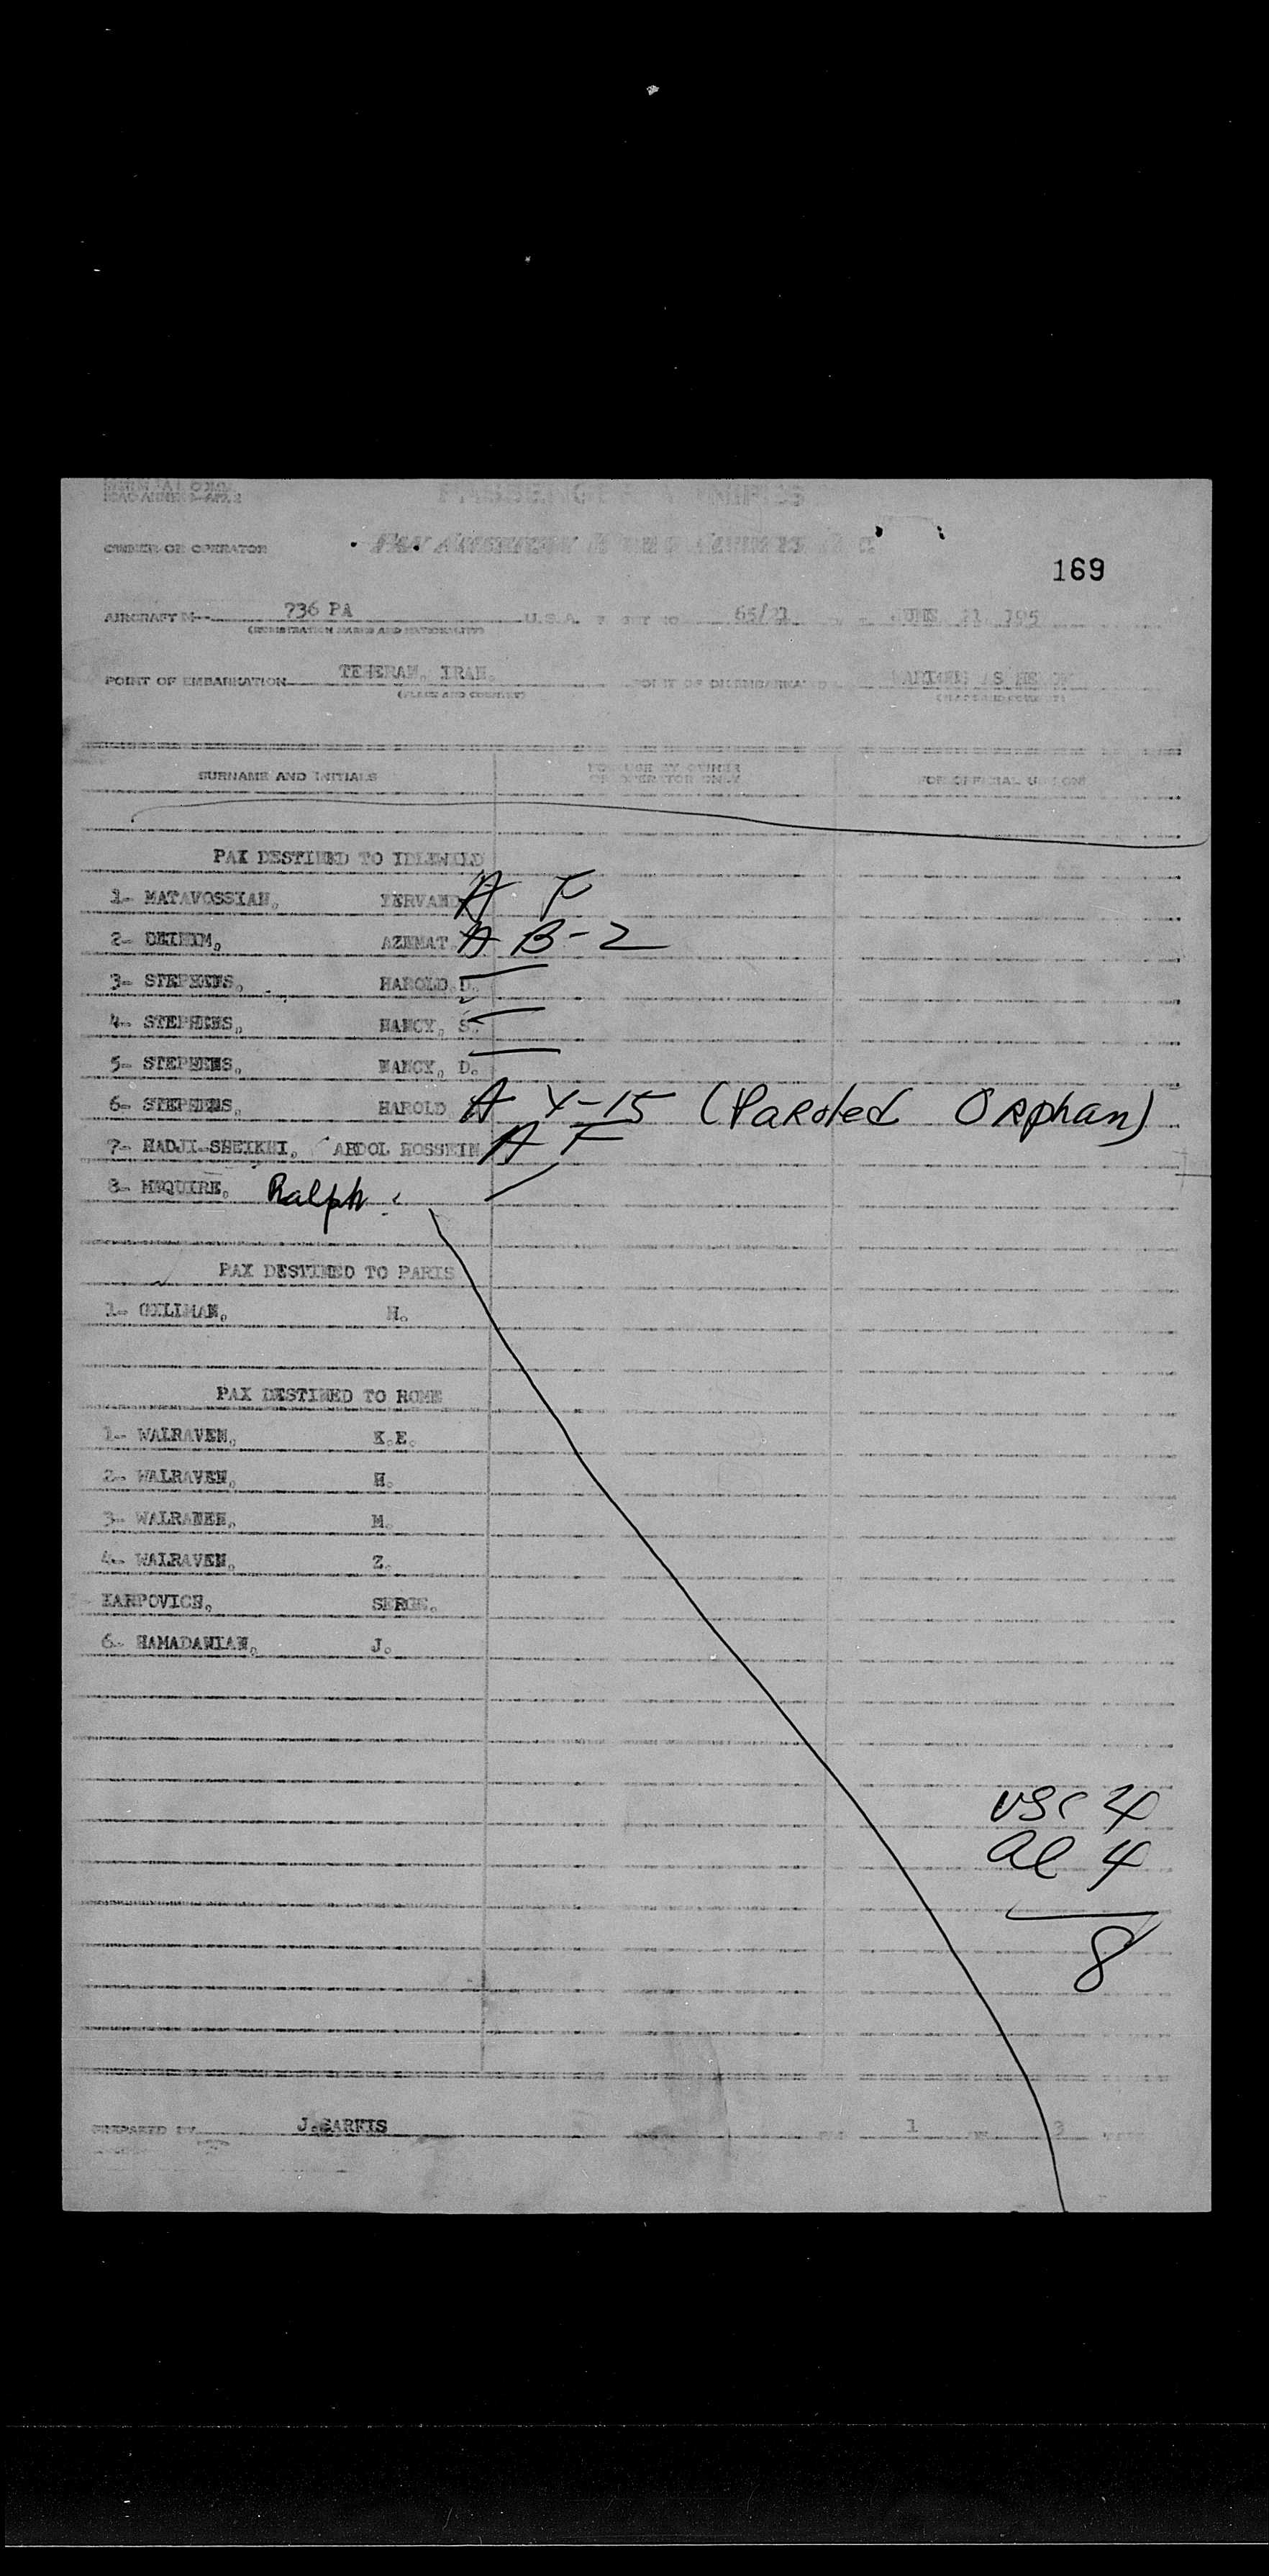 ICAO ANNEX 9-APP. 2
PASSENGER MANIFEST
OWNER OR OPERATOR PAN AMERICAN WORLD AIRWAYS
169
AIRCRAFT N 736 PA U.S.A. FLIGHT NO 65/21 JUNE 21, 195
(REGISTRATION MARKS AND NATIONALITY)
POINT OF EMBARKATION TEHERAN, IRAN. POINT OF DISEMBARKATION
(PLACE AND COUNTRY) (PLACE AND COUNTRY)
SURNAME AND INITIALS FOR USE BY OWNER OR OPERATOR ONLY FOR OFFICIAL USE ONLY
PAX DESTINED TO IDLEWILD
1- MATAVOSSIAN, YERVAND A F
2- DEIHIM, AZEMAT A B-2
3- STEPHENS, HAROLD, D.
4- STEPHENS, NANCY, S.
5- STEPHENS, NANCY, D.
6- STEPHENS, HAROLD A Y-15 (Paroled Orphan)
7- HADJI-SHEIKHI, ABDOL HOSSEIN A F
8- MCQUIRE, Ralph
PAX DESTINED TO PARIS
1- GELLMAN, H.
PAX DESTINED TO ROME
1- WALRAVEN, K.E.
2- WALRAVEN, H.
3- WALRAVEN, M.
4- WALRAVEN, Z.
KARPOVICH, SERGE.
6- HAMADANIAN, J.
USC 4
Al 4
8
PREPARED BY J.SARKIS 1 3